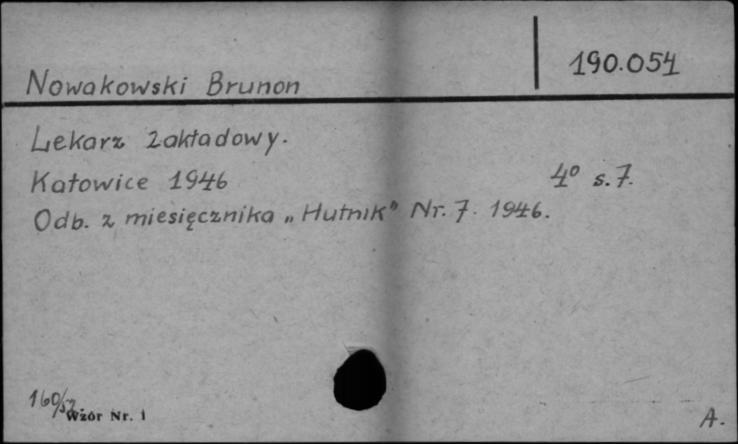 190.054
Nowakowski Brunon
Lekarz zakładowy.
Katowice 1946 4° s. 7.
Odb. z miesięcznika „Hutnik" Nr. 7. 1946.
160/52.
Wzór Nr. 1
A.